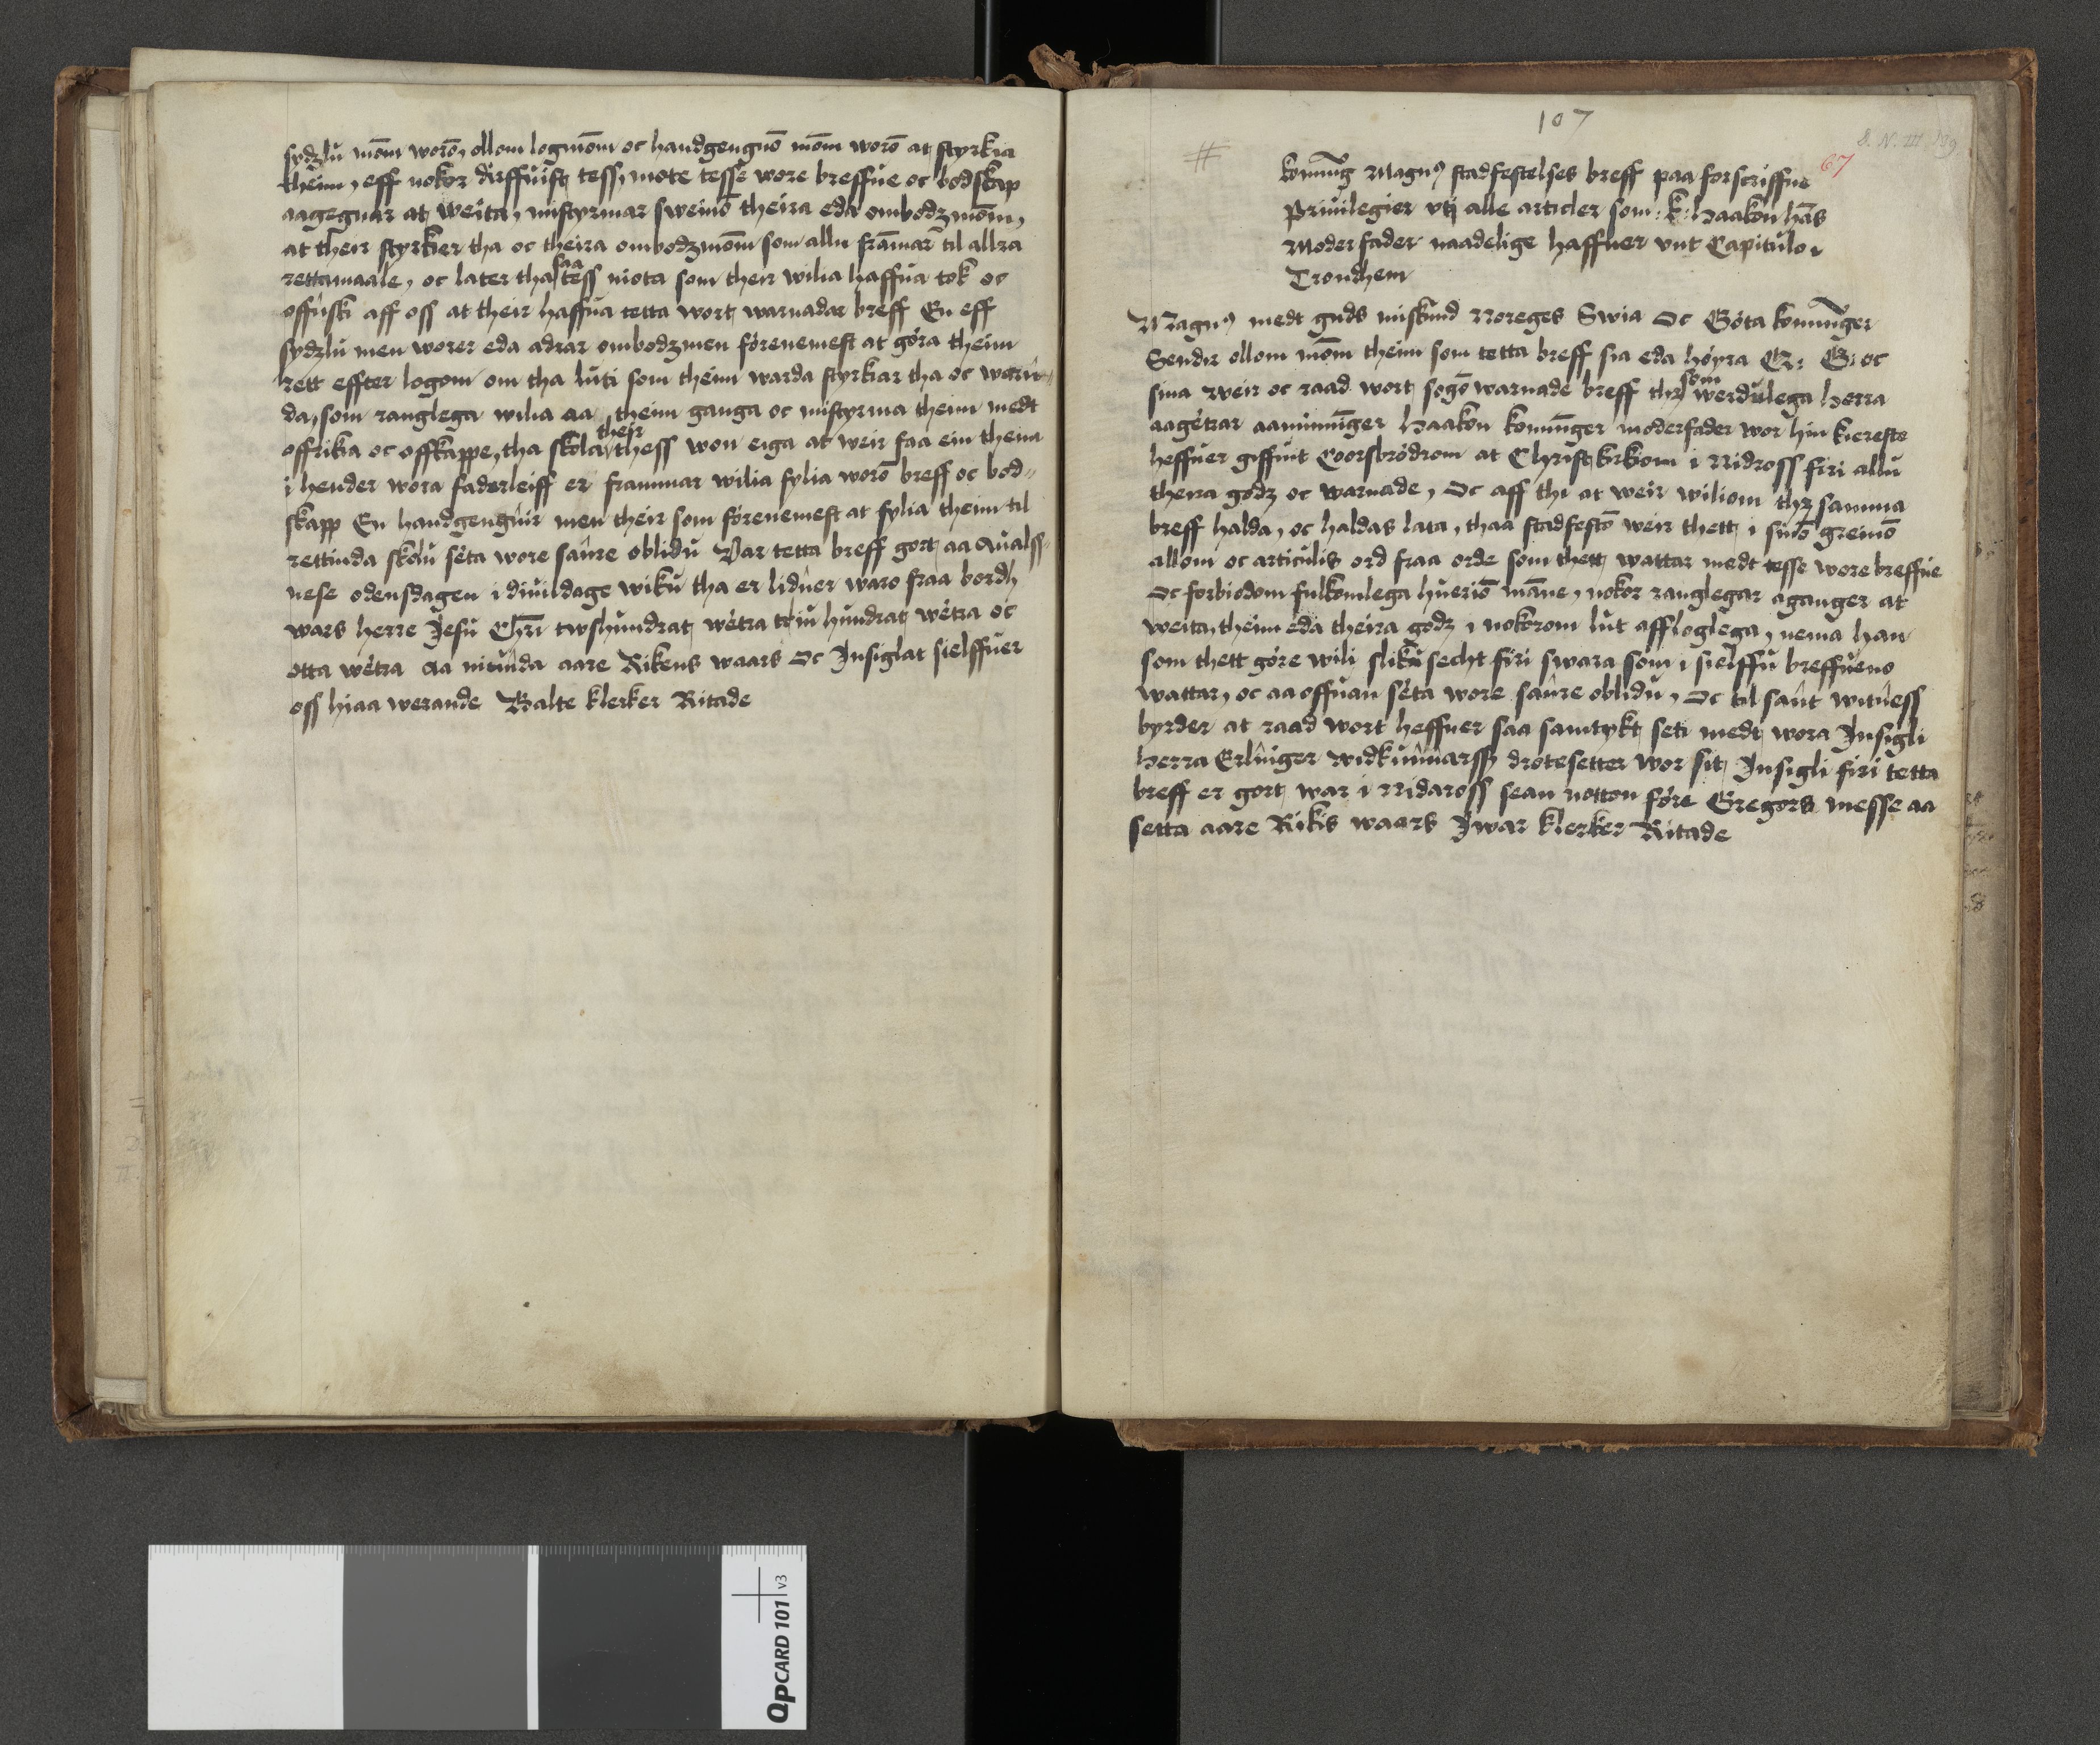 sydzlu mōm worō, ollom logmōm oc handgengnō mōm worō at styrkia
theim, eff nokor dirffuist tess, mote tesse wore breffue oc bodskap
aagegnar at weita, mistyrmar sweinō theira eda ombodzmōm,
at their styrkier tha oc theira ombodzmōm som allu frāmar til allra
rettamaale, oc later tha saa tess niota som their wilia haffua tok oc
offuski aff oss at their haffua tetta wort warnadar breff En eff
sydzlu men worer eda adrar ombodzmen förenemest at göra theim
rett effter logom om tha luti som theim warda styrkiar tha oc warn-
da, som ranglega wilia aa theim ganga oc mistyrma theim medt
offrikia oc offkappe, tha skola their thess won eiga at weir faa ein thena
i hender wora faderleiff er frammar wilia fylia worō breff oc bod-
skapp En handgengnir men their som förenemest at fylia theim til
rettinda skolu sëta wore sanre oblidu Var tetta breff gort aa Aualss-
nese odensdagen i diuildage wiku tha er lidner waro fraa bordh
wars herre Jesu Chrī twshundrat wëtra triu hundrat wëtra oc
otta wëtra aa nitunda aare Rikens waars Oc Insiglat sielffuer
oss hiaa werande Balte klerker Ritade
107
S. N. III. 139
67
#
konning Magnus stadfestelses breff paa forscriffne
Priuilegier vtj alle articler som: k: Haakon hās
Moder fader naadelige haffuer vnt Capitulo i
Trondhem
Magnus medt guds miskund Noreges Swia Oc Göta konunger
Sendir ollom mōm theim som tetta breff sia eda höyra Q: G: oc
sina weir oc raad wort sogō warnade breff thz som werdulega Herra
aagëtrar aaminninger Haakon konunger moderfader wor hin kiereste
heffuer giffuit Coorsbrödrom at Christkirkiom i Nidross firi allu
theira godz oc warnade, Oc aff thi at weir wiliom thz samma
breff halda, oc haldas lata, thaa stadfestō weir thett i sinō greinō
allom oc articulis ord fraa orde som thett wattar medt tesse wore breffue
Oc forbiodom fulkomlega hueriō māne, nokor ranglegar aganger at
weita, theim eda theira godz i nokorom lut affloglega, nema han
som thett göre wili sliku secht firi swara som i sielffu breffueno
wattar, oc aa offuan sëta wore sanre oblidu, Oc til sant witness
byrder at raad wort heffuer saa samtykt seti medt wora Insigli
Herra Erlinger widkunnarss drotesetter wor sit Insigli firi tetta
breff er gort war i Nidaross sean notton före Gregors messe aa
setta aare Rikis waars Iwar klerker Ritade